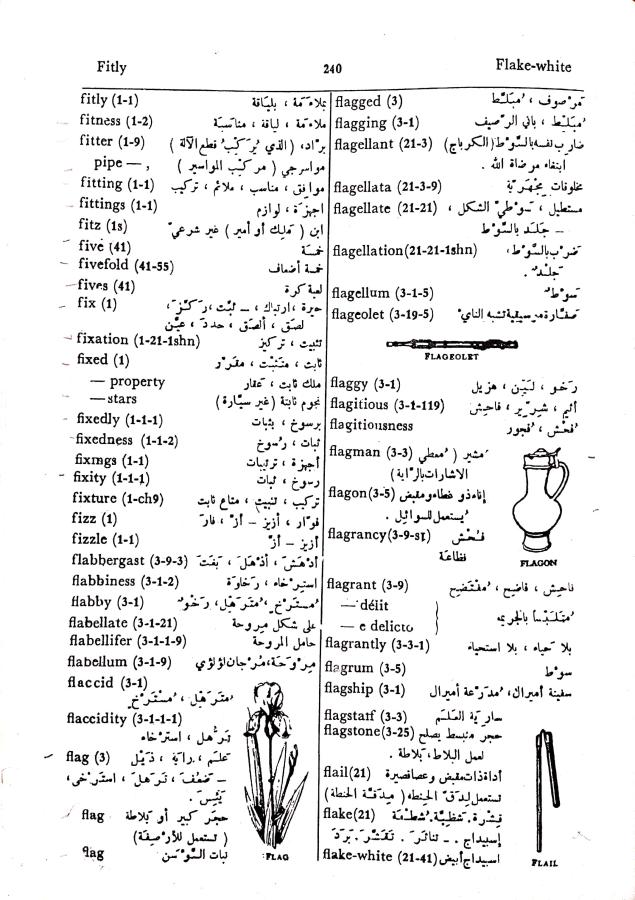 Fitly
240
Flake-white
fitly (1-1) بملاءَمة ، بلياقة
fitness (1-2) ملاءَمة ، لياقة ، مناسَبة
fitter (1-9) برّاد، (الذي يُركّب قطع الآلة)
pipe —, مواسرجي (مركّب المواسير)
fitting (1-1) موافق ، مناسب ، ملائم ، تركيب
fittings (1-1) اجهزَة ، لوازم
fitz (1s) ابن (مَلِك أو أمير) غير شرعيّ
five (41) خمسَة
fivefold (41-55) خمسة أضعاف
fives (41) لعبة كرة
fix (1) حيرة ، ارتباك ، — ثبّت ، ركّزَ ،
لصَق ، ألصَق ، حدّدَ ، عيّن
fixation (1-21-1shn) تثبيت ، تركيز
fixed (1) ثابت ، مثبّت ، مقرّر
— property ملك ثابت ، عقار
— stars نجوم ثابتة (غير سيّارة)
fixedly (1-1-1) برسوخ ، بثبات
fixedness (1-1-2) ثبات ، رُسوخ
fixings (1-1) أجهزة ، ترتيبات
fixity (1-1-1) رسوخ ، ثبات
fixture (1-ch9) تركيب ، تثبيت ، متاع ثابت
fizz (1) فوّار ، أزيز — أزّ ، فارَ
fizzle (1-1) أزيز — أزّ
flabbergast (3-9-3) أدهَشَ ، أذهَلَ ، بَغَتَ
flabbiness (3-1-2) استرخاء ، رَخاوَة
flabby (3-1) مُسترْخٍ ، مُترَهّل ، رخوٌ
flabellate (3-1-21) على شكل مِروحة
flabellifer (3-1-1-9) حامل المروحة
flabellum (3-1-9) مِروَحَة ، مُرجان لؤلؤي
flaccid (3-1)
مُترَهّل ، مُستَرْخٍ
flaccidity (3-1-1-1)
ترهّل ، استرخاء
flag (3) علَم ، راية ، ذَيْل
— ضعُفَ ، ترَهلَ ، استرخى،
يَئِسَ .
flag حجر كبير أو بَلاطة
(تستعمل للأرصِفة)
flag نبات السَّوسَن
FLAG
flagged (3) مَرصوف ، مُبَلّط
flagging (3-1) مُبلّط ، باني الرّصيف
flagellant (21-3) ضارب نفسه بالسَّوط (الكرباج)
ابتغاء مرضاة الله .
flagellata (21-3-9) مخلوقات مِجْهَريّة
flagellate (21-21) مستطيل ، سَوطيّ الشكل ،
— جلَدَ بالسَّوْط
flagellation (21-21-1shn) ضَرب بالسَّوْط ،
جَلْدٌ .
flagellum (3-1-5) سَوطٌ
flageolet (3-19-5) صفّارة موسيقية تشبه الناي
FLAGEOLET
flaggy (3-1) رَخو ، لَيّن ، هزيل
flagitious (3-1-119) أثيم ، شرّير ، فاحِش
flagitiousness فُحْش ، فُجور
flagman (3-3) مُشير (مُعطي
الاشارات بالرّاية)
flagon (3-5) إناء ذو غطاء ومقبض
يُستعمل للسوائل .
flagrancy (3-9-s1) فُحْش
فظاعَة
FLAGON
flagrant (3-9) فاحِش ، فاضِح ، مُفتَضِح
— délit
— e delicto مُتلبّساً بالجريمة
flagrantly (3-3-1) بلا حَياء ، بلا استحياء
flagrum (3-5) سوط
flagship (3-1) سفينة أميرال ، مُدرّعة أميرال
flagstaff (3-3) ساريَة العَلَم
flagstone (3-25) حجر منبسط يصلح
لعمل البلاط ، بَلاطة .
flail (21) أداة ذات مقبض وعصا قصيرة
تستعمل لدقّ الحنطة (مِدقّة الحنطة)
flake (21) قِشرَة ، شَظيّة ، شُطفَة
إسبيداج . — تناثرَ . تقشّرَ . برَدَ
flake-white (21-41) اسبيداج أبيض
FLAIL